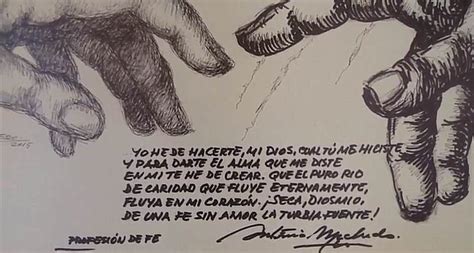 YO HE DE HACERTE, MI DIOS, CUAL TÚ ME HICISTE
Y PARA DARTE EL ALMA QUE ME DISTE
EN MI TE HE DE CREAR. QUE EL PURO RIO
DE CARIDAD QUE FLUYE ETERNAMENTE,
FLUYA EN MI CORAZÓN. ¡SECA, DIOS MIO,
DE UNA FE SIN AMOR LA TURBIA FUENTE!
PROFESIÓN DE FE
Antonio Machado